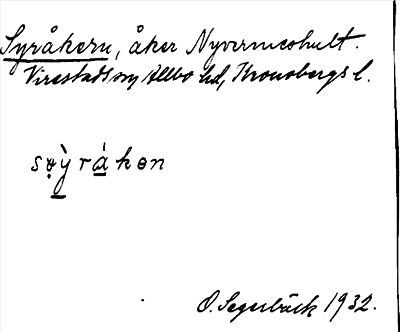 Syråkern, åker Nyvirmeshult.
Virestads sn, Allbo hd, Kronobergs l.
søỳráken
O. Segerbäck 1932.